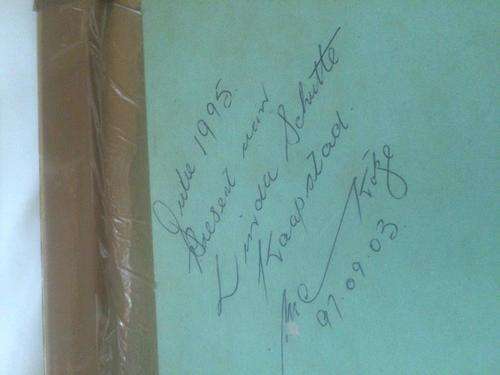 Julie 1995
Present van
Linda Schutte
Kaapstad.
MC Kótze
97.09.03.